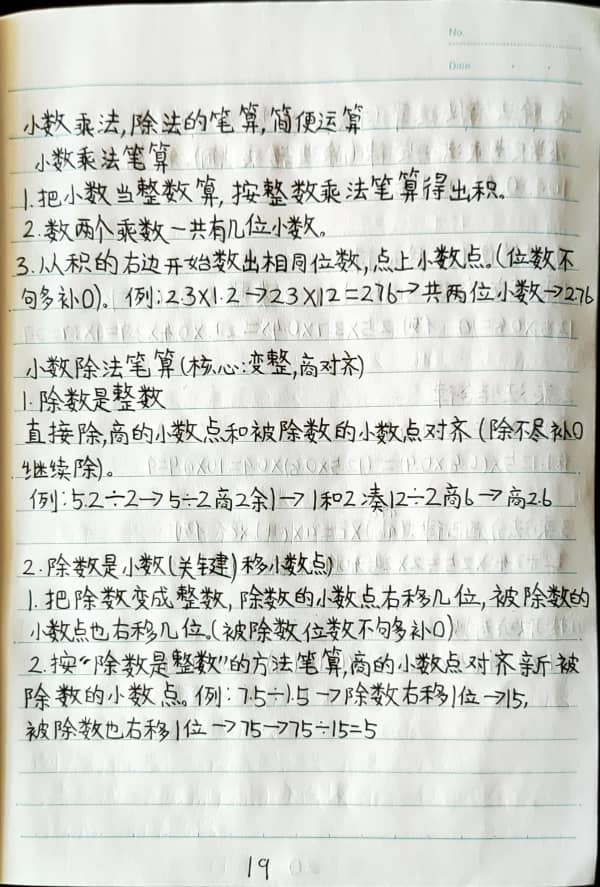 No.
Date
小数乘法,除法的笔算,简便运算
小数乘法笔算
1.把小数当整数算,按整数乘法笔算得出积。
2.数两个乘数一共有几位小数。
3.从积的右边开始数出相同位数,点上小数点。(位数不
够多补0)。例:2.3×1.2→23×12=276→共两位小数→276
小数除法笔算(核心:变整,商对齐)
1.除数是整数
直接除,商的小数点和被除数的小数点对齐(除不尽补0
继续除)。
例:5.2÷2→5÷2商2余1→1和2凑12÷2商6→商2.6
2.除数是小数(关键)移小数点)
1.把除数变成整数,除数的小数点右移几位,被除数的
小数点也右移几位。(被除数位数不够多补0)
2.按“除数是整数”的方法笔算,商的小数点对齐新被
除数的小数点。例:7.5÷1.5→除数右移1位→15,
被除数也右移1位→75→75÷15=5
19